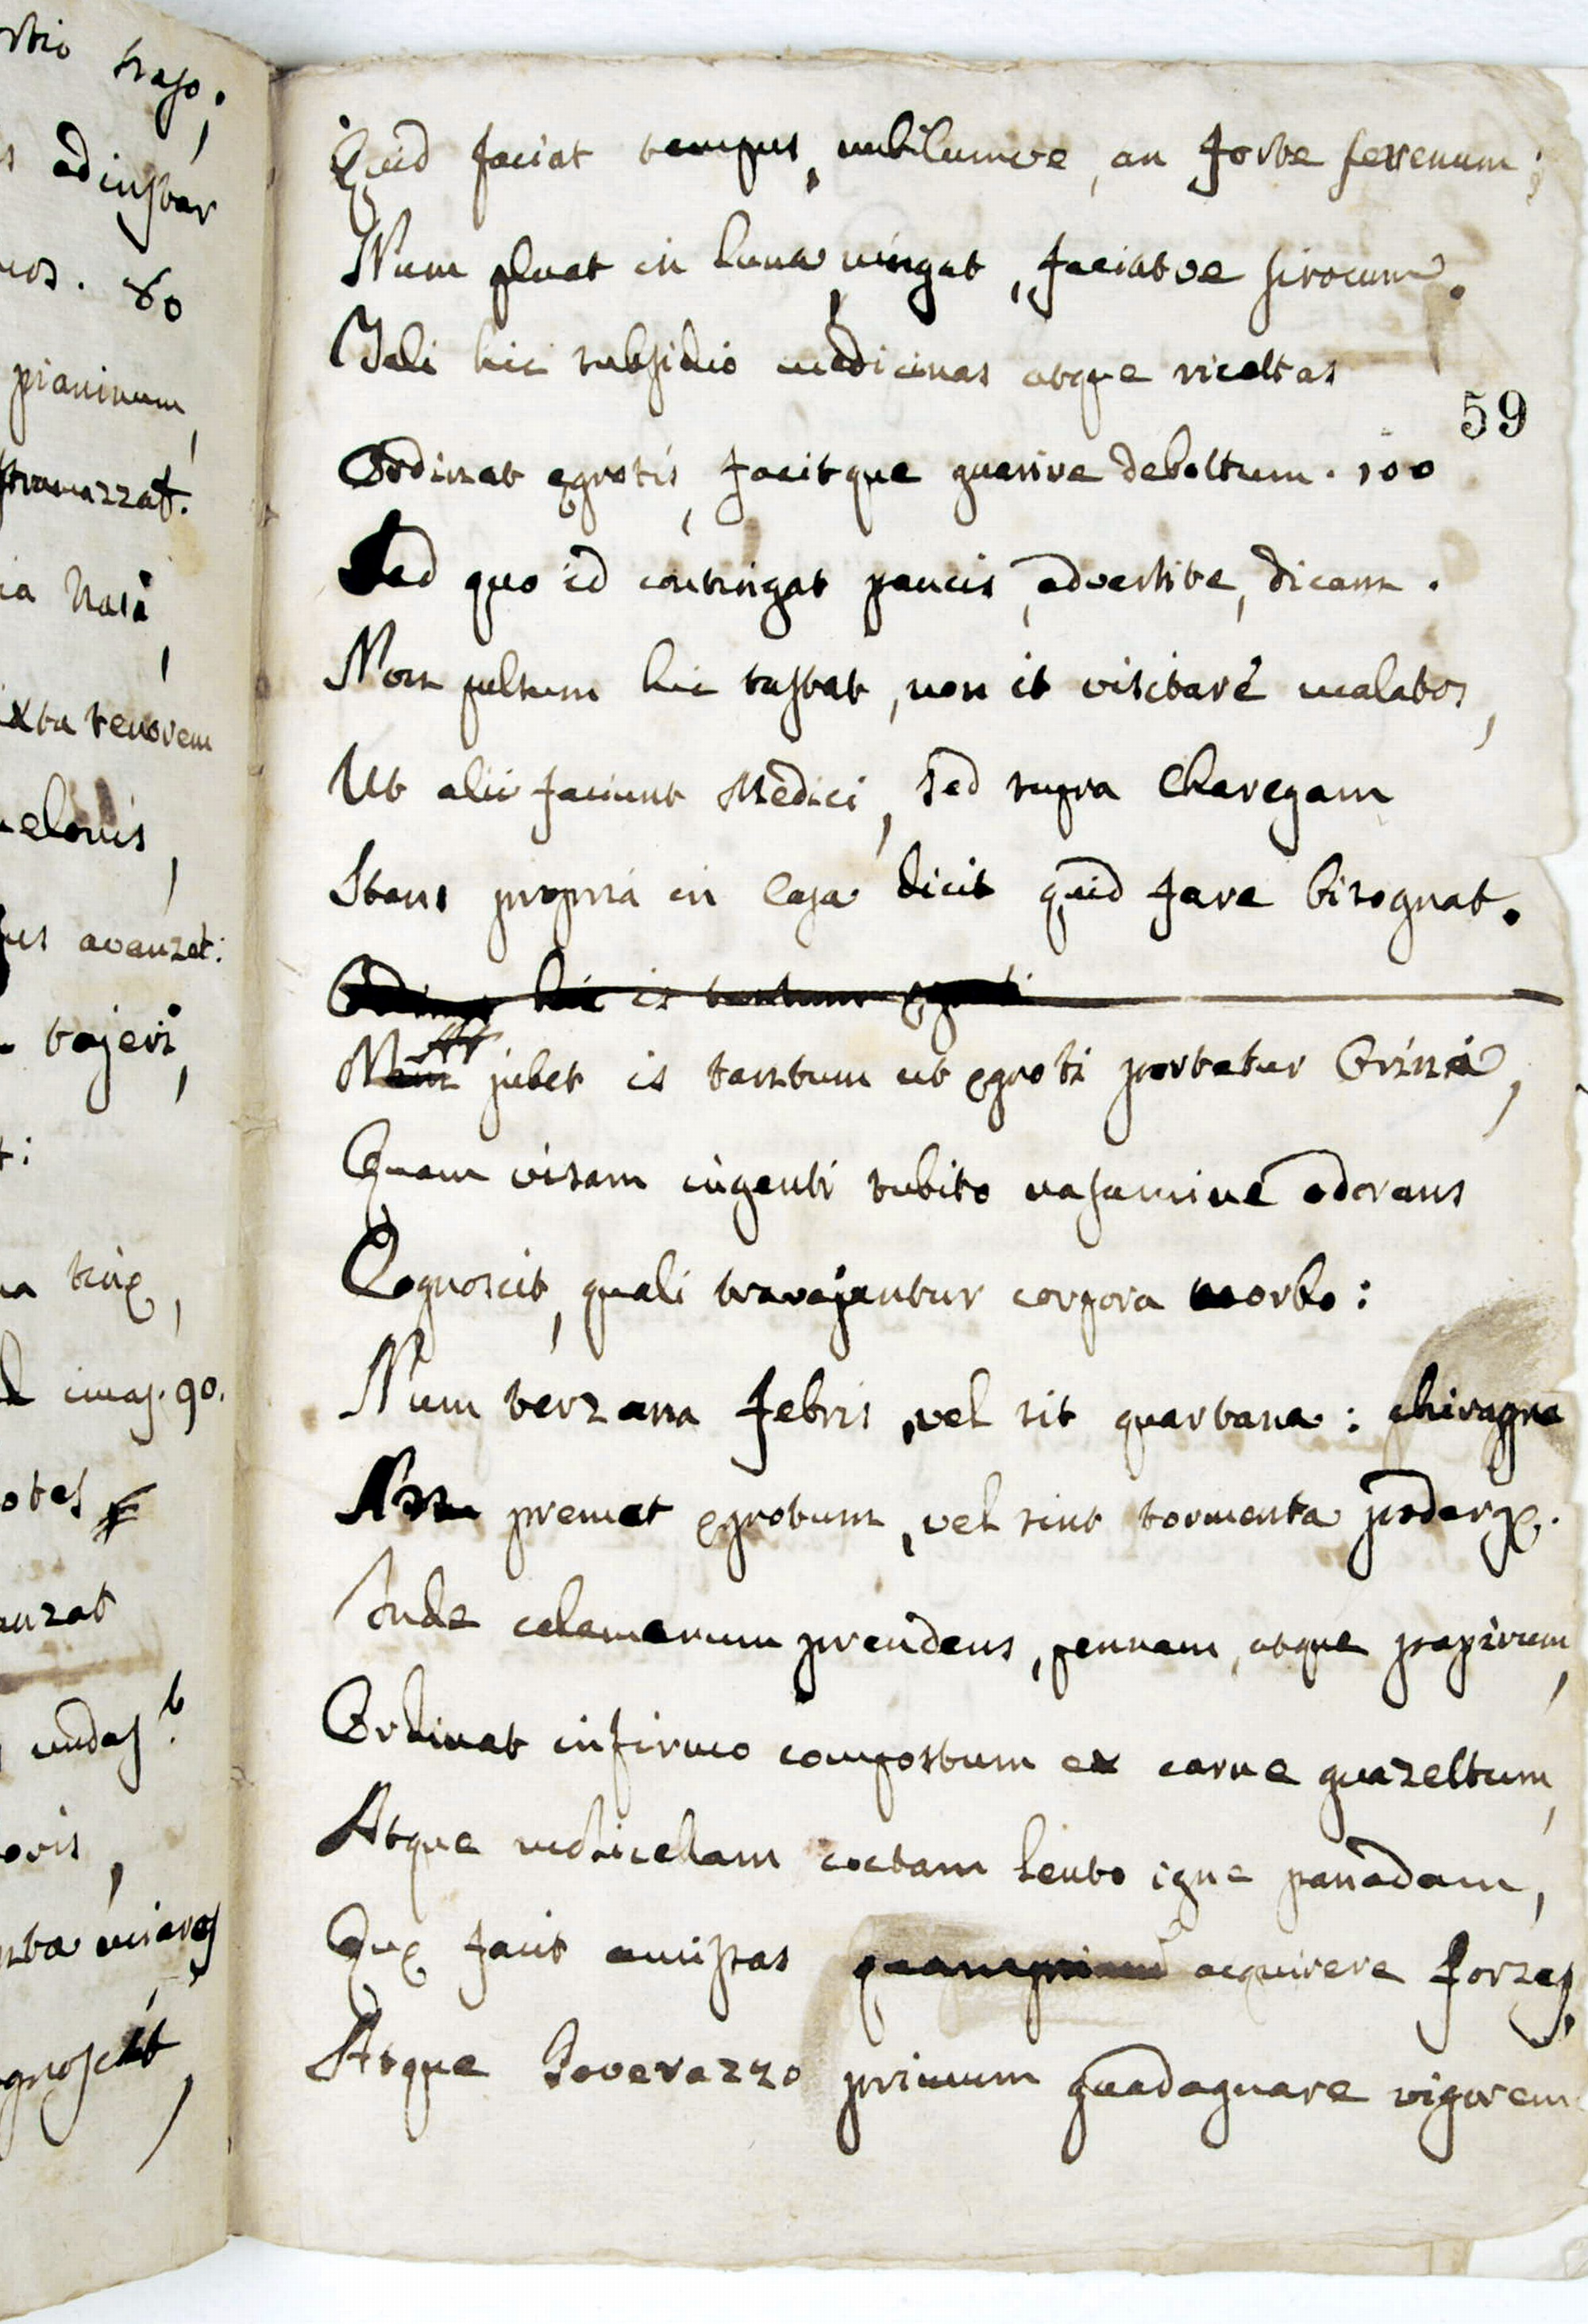 rtio traso;
s ad instar
uos. 80
pianinum,
stramazzat.
ia Nasi,
ixta tenorem
elonis,
us avanzet:
tajeri,
t:
a tinæ,
imas. 90.
otes
anzat
undas?
oris,
nta miares,
gnoscit,
Quid faciat tempus, nubilumve, an forte serrenum;
Num pluat in luna, vingat, faciatve sirocum.
Tali hic subsidio medicinas atque ricettas
59
Ordinat egrotis, facitque guarire debottum. 100
Sed quo id contingat paucis, advertite, dicam.
Non pulsum hic tastat, non it visitare malatos,
Ut alii faciunt Medici, sed supra Charegam
Stans propria in Casa dicit quid fare bisognat.
hic is tantum egroti
At
Nam jubet is tantum ut egroti portetur Orina,
Quam visam ingenti subito nasamine odorans
Cognoscit, quali travajantur corpora morbo:
Num terzana febris, vel sit quartana: chiragra
premat egrotum, vel sint tormenta poderge.
Inde calamarum prendens, pennam, atque papirum,
Ordinat infirmo compostum ex carne guazettum,
Atque mdicellam coctam lento igne panadam,
Quæ facit amissas quamprimum acquirere forzas,
Atque Poverazzo primum guadagnare vigorem